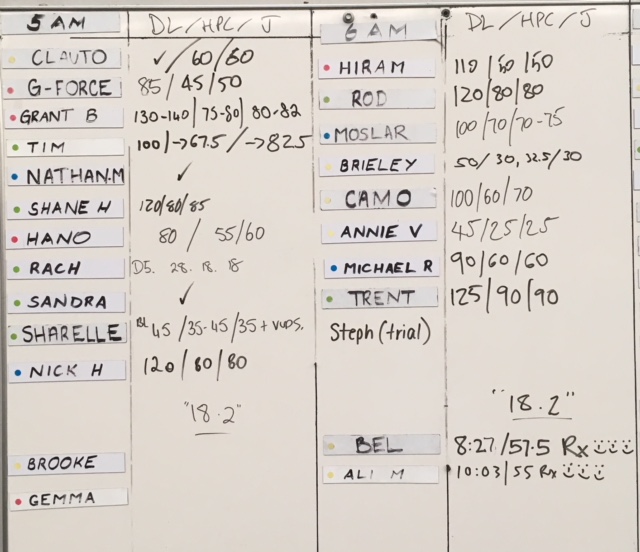 5 AM DL/HPC/J
CLAUTO ✓/60/60
G-FORCE 85/45/50
GRANT B 130-140/75-80/80-82
TIM 100/→67.5/→82.5
NATHAN.M ✓
SHANE H 120/80/85
HANO 80/55/60
RACH D5. 28. 18. 18
SANDRA ✓
SHARELLE BL 45/35-45/35+VUPS.
NICK H 120/80/80
"18.2"
BROOKE
GEMMA
6 AM DL/HPC/J
HIRAM 110/50/50
ROD 120/80/80
MOSLAR 100/70/70-75
BRIELEY 50/30,32.5/30
CAMO 100/60/70
ANNIE V 45/25/25
MICHAEL R 90/60/60
TRENT 125/90/90
Steph (trial)
"18.2"
BEL 8:27/57.5 Rx
ALI M 10:03/55 Rx